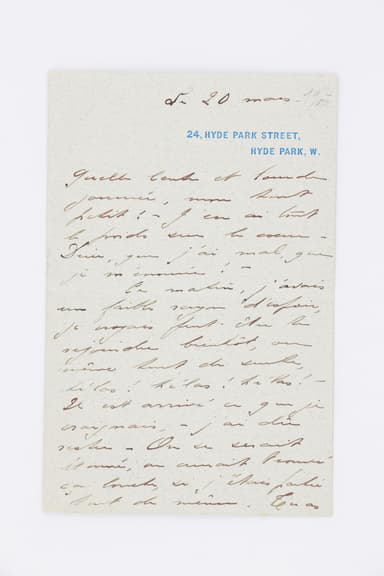 Le 20 mars.
24, HYDE PARK STREET,
HYDE PARK, W.
Quelle lente et lourde
journée, mon tout
petit! - J'en ai tout
le poids sur le cœur -
Dieu, que j'ai mal, que
je m'ennuie! -
Ce matin, j'avais
un faible rayon d'espoir,
je croyais peut-être te
rejoindre bientôt, ou
même tout de suite,
hélas! hélas! hélas! -
Il est arrivé ce que je
craignais, - j'ai dû
rester - On se serait
étonné, on aurait trouvé
ça louche, si j'étais partie
tout de même. Tu as